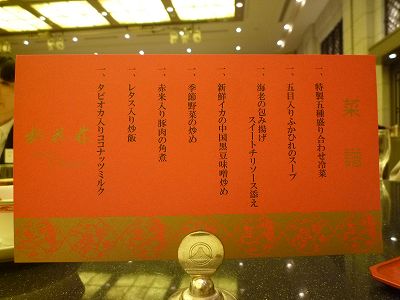 菜譜
一、特製五種盛り合わせ冷菜
一、五目入りふかひれのスープ
一、海老の包み揚げ
スイートチリソース添え
一、新鮮イカの中国黒豆味噌炒め
一、季節野菜の炒め
一、赤米入り豚肉の角煮
一、レタス入り炒飯
一、タピオカ入りココナッツミルク